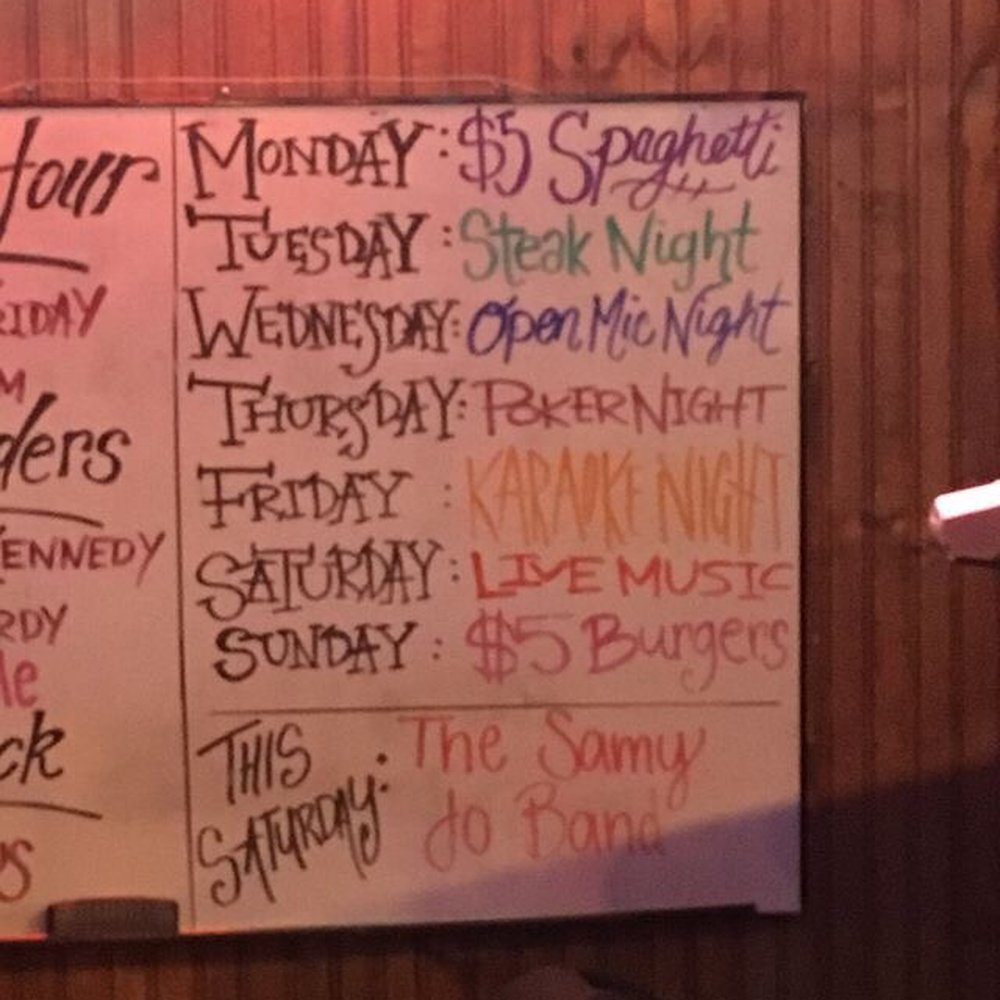 four
RIDAY
M
ders
KENNEDY
RDY
le
ck
MONDAY: $5 Spaghetti
TUESDAY: Steak Night
WEDNESDAY: Open Mic Night
THURSDAY: POKER NIGHT
FRIDAY: KARAOKE NIGHT
SATURDAY: LIVE MUSIC
SUNDAY: $5 Burgers
THIS SATURDAY: The Samy
Jo Band